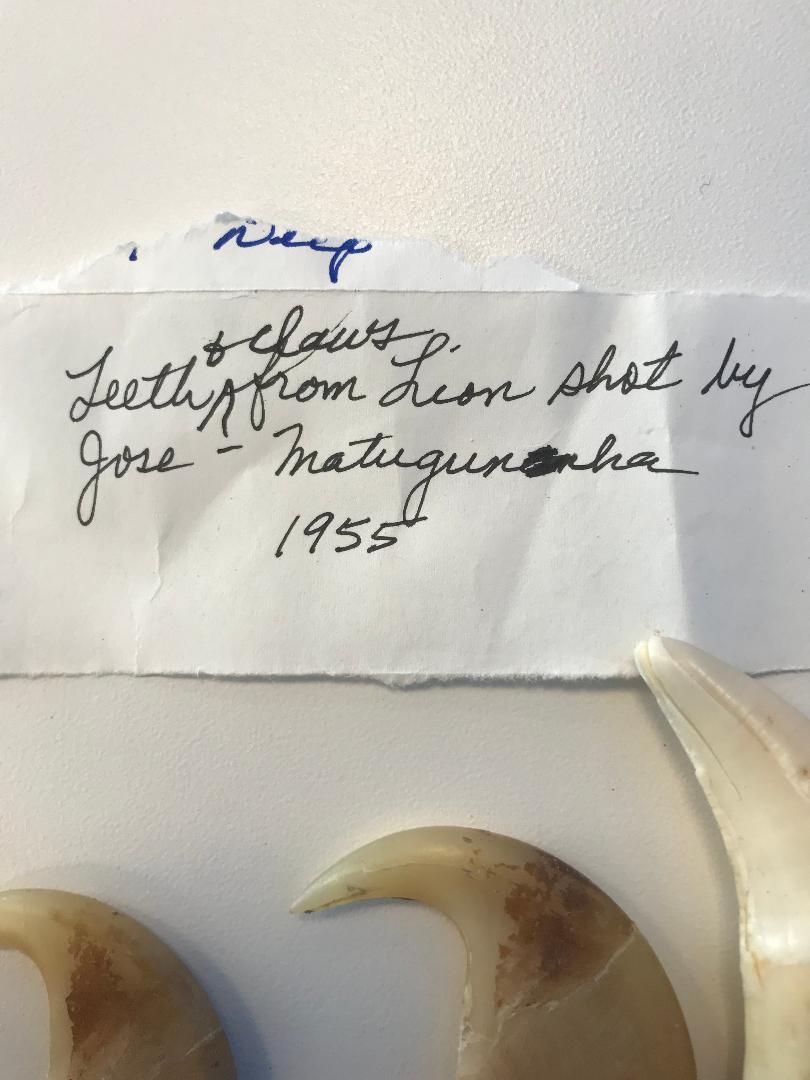 Teeth & claws from Lion shot by
Jose - Matugunha
1955